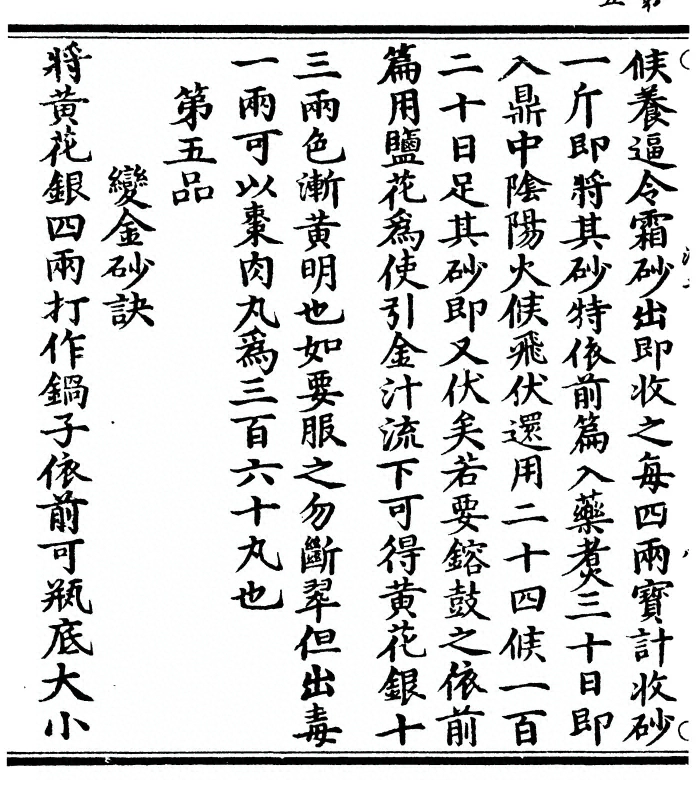 候養逼令霜砂出即收之每四兩寶計收砂
一斤即將其砂特依前篇入藥煮三十日即
入鼎中陰陽火候飛伏還用二十四候一百
二十日足其砂即又伏矣若要鎔鼓之依前
篇用鹽花爲使引金汁流下可得黄花銀十
三兩色漸黄明也如要服之勿斷翠但出毒
一兩可以棗肉丸爲三百六十丸也
第五品
變金砂訣
將黄花銀四兩打作鍋子依前可瓶底大小